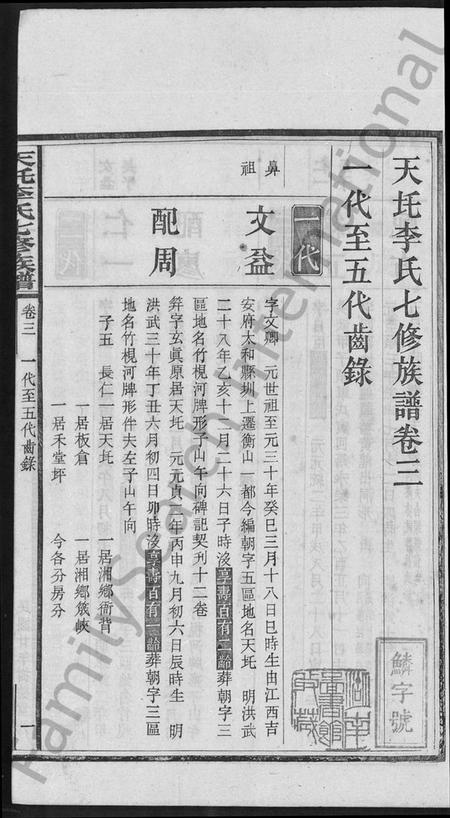 天圫李氏七修族譜卷三
一代至五代齒錄
鱗字號
湖南圖書館收藏
一代
鼻祖
文益
字文卿 元世祖至元三十年癸巳三月十八日巳時生由江西吉
安府太和縣圳上遷衡山一都今編朝字五區地名天圫 明洪武
二十八年乙亥十二月二十六日子時沒享壽百有三齡葬朝字三
區地名竹梘河牌形子山午向碑記契刋十二卷
配周
筓字玄眞原居天圫 元元貞二年丙申九月初六日辰時生 明
洪武三十年丁丑六月初四日卯時沒享壽百有二齡葬朝字三區
地名竹梘河牌形件夫左子山午向
子五 長仁一居天圫 一居湘鄉衙背
一居板倉 一居湘鄉
一居禾堂坪 今各分房分
天圫李氏七修族譜
卷三 一代至五代齒錄
一
FamilySearch International